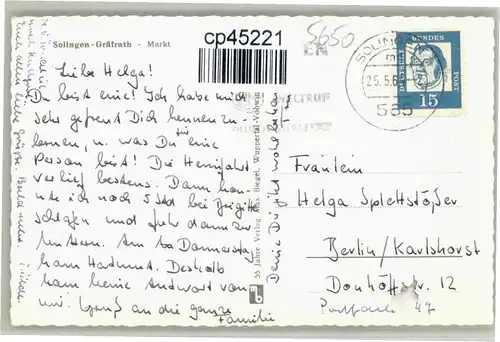 Solingen-Gräfrath - Markt
cp45221
5650
SOLINGEN
25.5.6
565
DEUTSCHE BUNDESPOST
15
Liebe Helga!
Du bist eine! Ich habe mich
sehr gefreut Dich kennenzu-
lernen, u. was Du für eine
Person bist! Die Heimfahrt
verlief bestens. Dann konn-
te ich noch 5 Std bei Brigitte
schlafen und fuhr dann zur
Am Donnerstag
kam Hartmut. Deshalb
kam keine Antwort von
mir. Gruß an die ganze
Familie
55 Jahre Verlag Max Biegel, Wuppertal-Vohwinkel
mb
Fräulein
Helga Splettstößer
Berlin/Karlshorst
Dönhoffstr. 12
Postfach 47